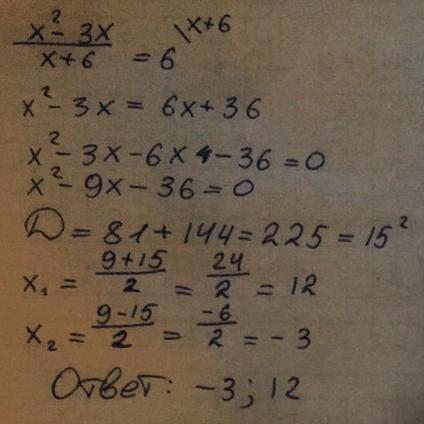 (x² - 3x)/(x+6) = 6 \x+6
x² - 3x = 6x + 36
x² - 3x - 6x - 36 = 0
x² - 9x - 36 = 0
D = 81 + 144 = 225 = 15²
x₁ = (9+15)/2 = 24/2 = 12
x₂ = (9-15)/2 = -6/2 = -3
Ответ: -3; 12